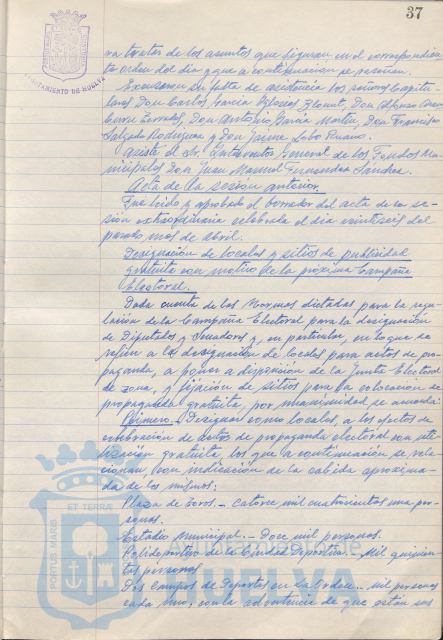 37
AYUNTAMIENTO DE HUELVA
ra tratar de los asuntos que figuran en el correspondien
te orden del día y que a continuación se reseñan.
Excusaron su falta de asistencia los señores Capitu
lares Don Carlos García Don Alfonso
Don Antonio García Martín, Don Francisco
Salgado Rodríguez y Don Jaime Lobo
Asiste el Sr. Interventor General de los Fondos Mu
nicipales Don Juan Manuel Fernández Sánchez.
Acta de la sesión anterior.
Fue leído y aprobado el borrador del acta de la se-
sión extraordinaria celebrada el día veintiseis del
pasado mes de Abril.
Designación de locales y sitios de publicidad
gratuita con motivo de la próxima Campaña
Electoral.
Dada cuenta de las Normas dictadas para la regu
lación de la Campaña Electoral para la designación
de Diputados y Senadores y, en particular, en lo que se
refiere a la designación de locales para actos de pro-
paganda, a poner a disposición de la Junta Electoral
de Zona, y fijación de sitios para la colocación de
propaganda gratuita, por unanimidad se acuerda:
Primero.- Designar como locales, a los efectos de
celebración de actos de propaganda electoral con uti
lización gratuita, los que a continuación se rela-
cionan, con indicación de la cabida aproxima-
da de los mismos:
Plaza de Toros.- Catorce mil cuatrocientas una per-
sonas.
Estadio Municipal.- Doce mil personas.
Polideportivo de la Ciudad Deportiva.- Mil quinien-
tas personas.
Dos Campos de Deportes en La Orden.- mil personas
cada uno, con la advertencia de que estos sos
ET TERRÆ
PORTUS MARIS
HUELVA